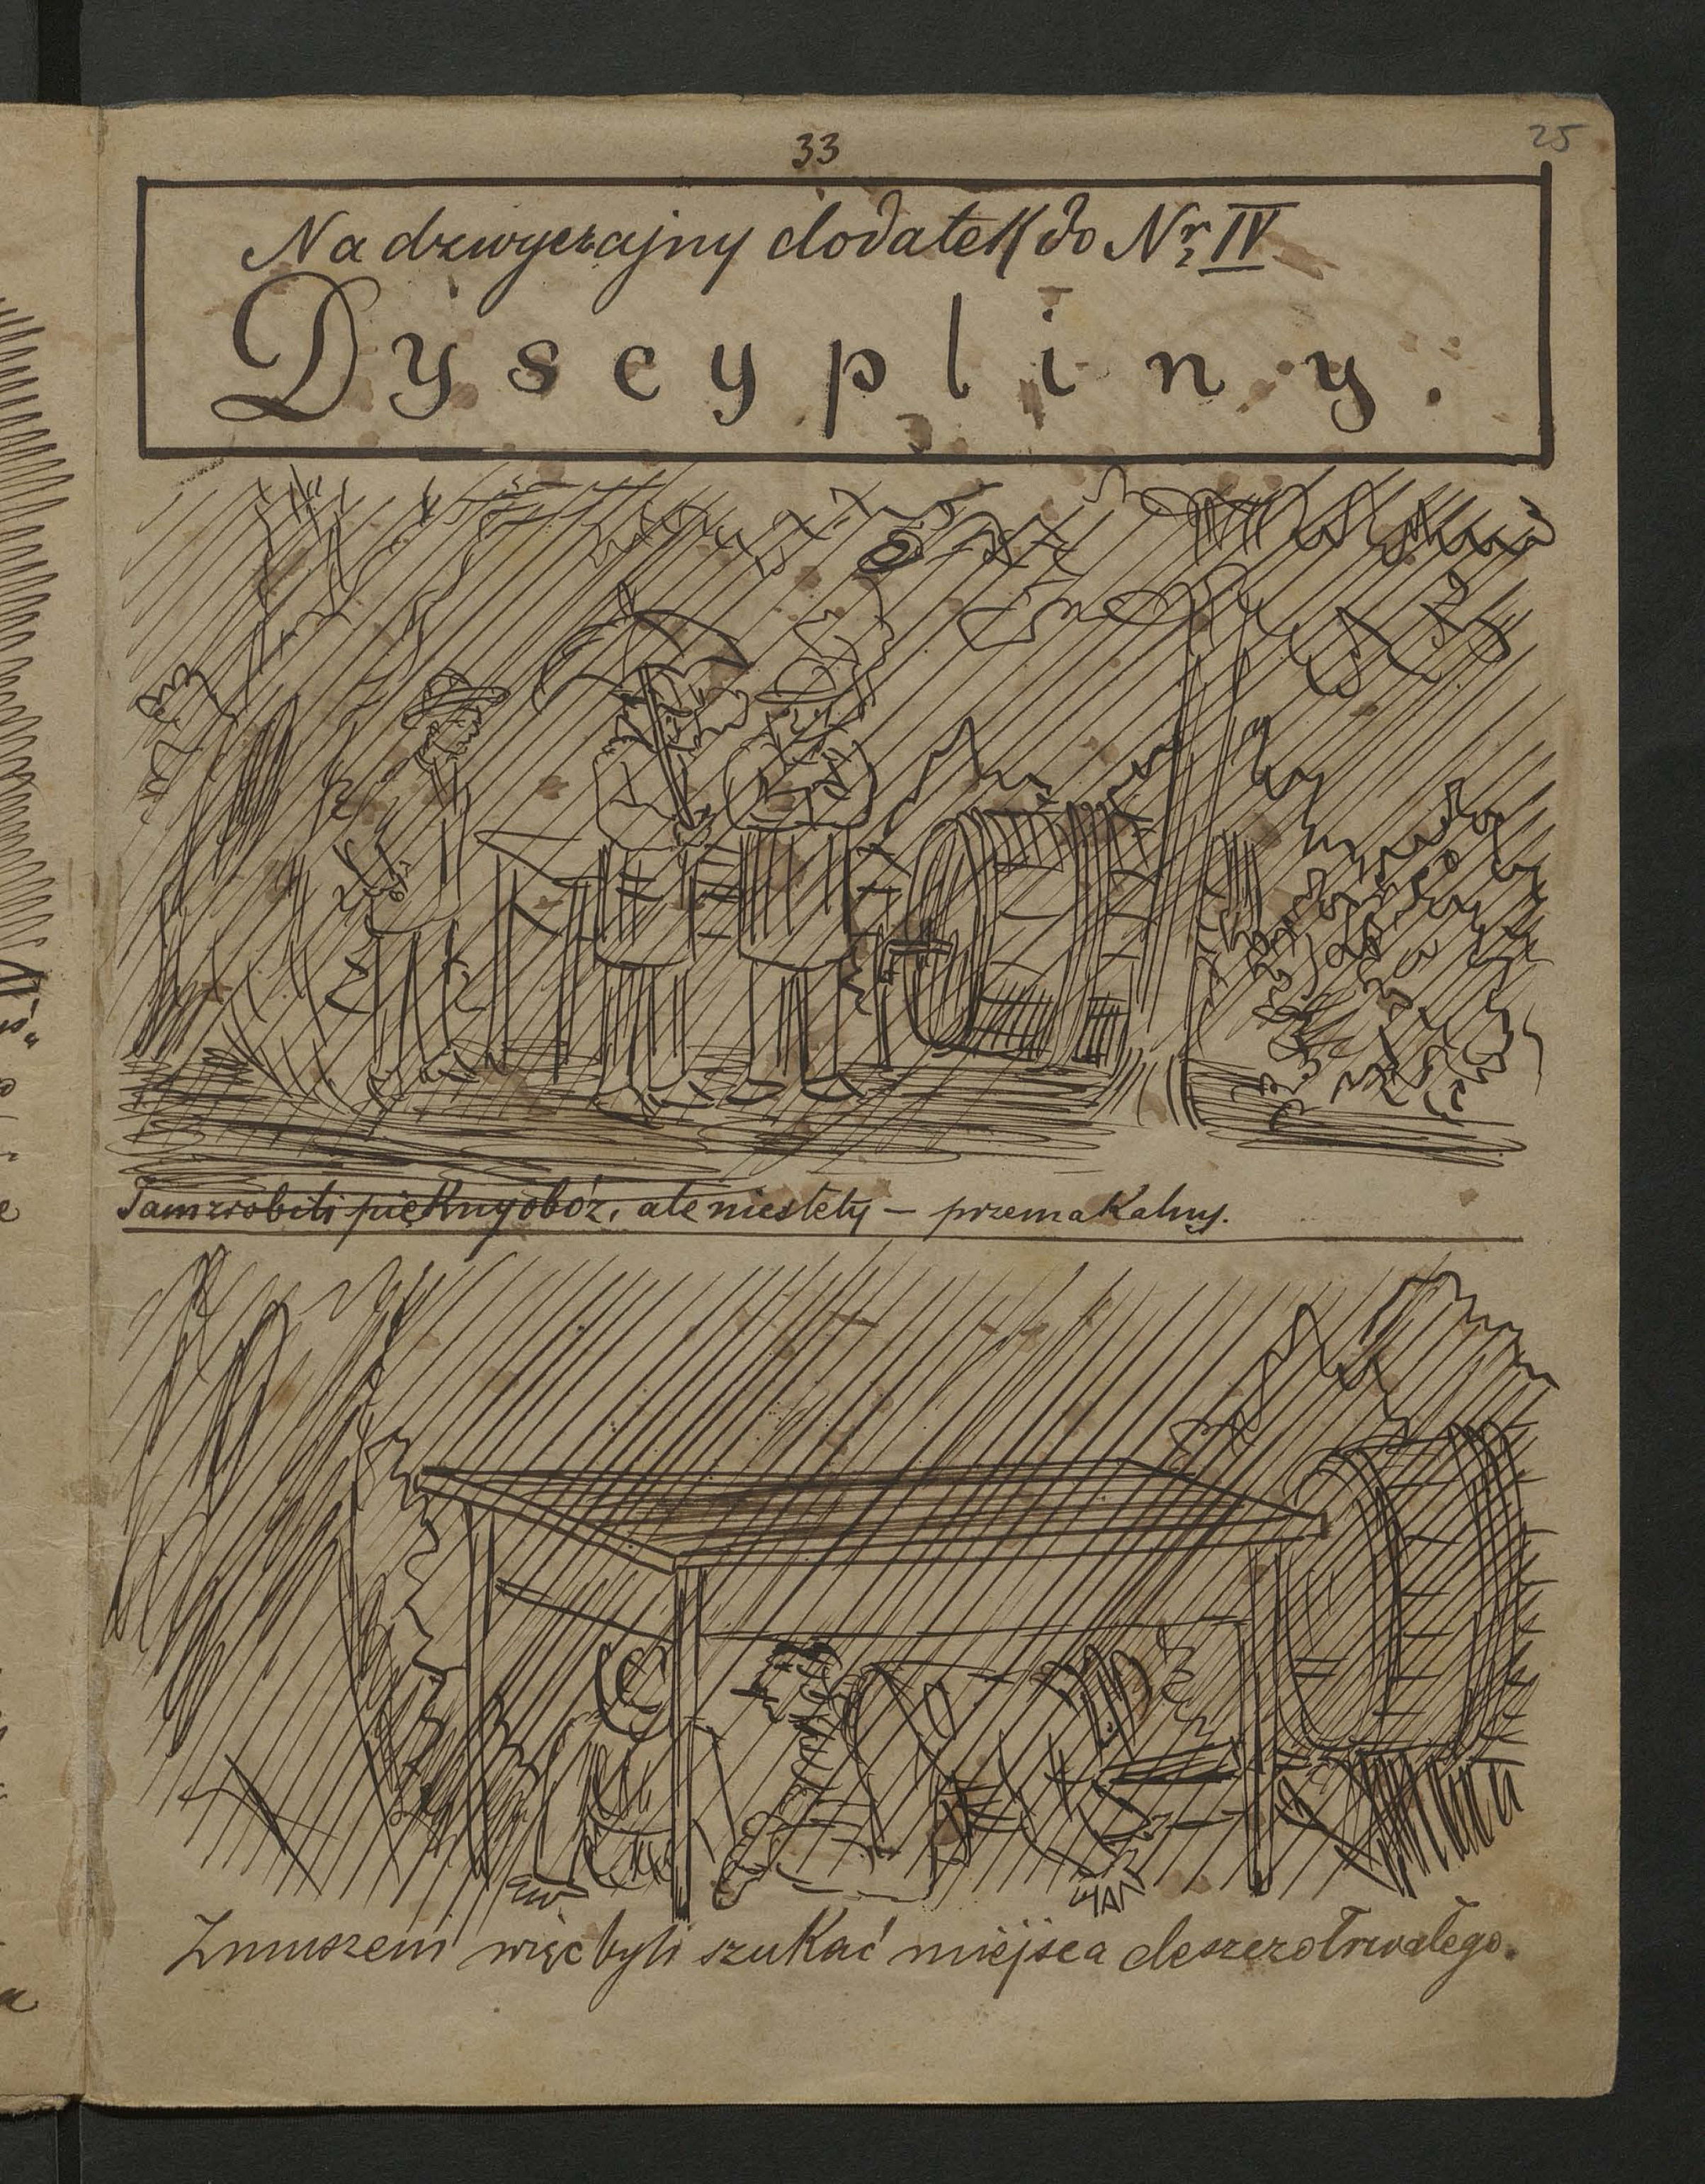 33
25
Nadzwyczajny dodatek do Nr IV
Dyscypliny.
Tam zrobili piękny obóz, ale niestety — przemakalny.
Zmuszeni więc byli szukać miejsca deszczotrwałego.